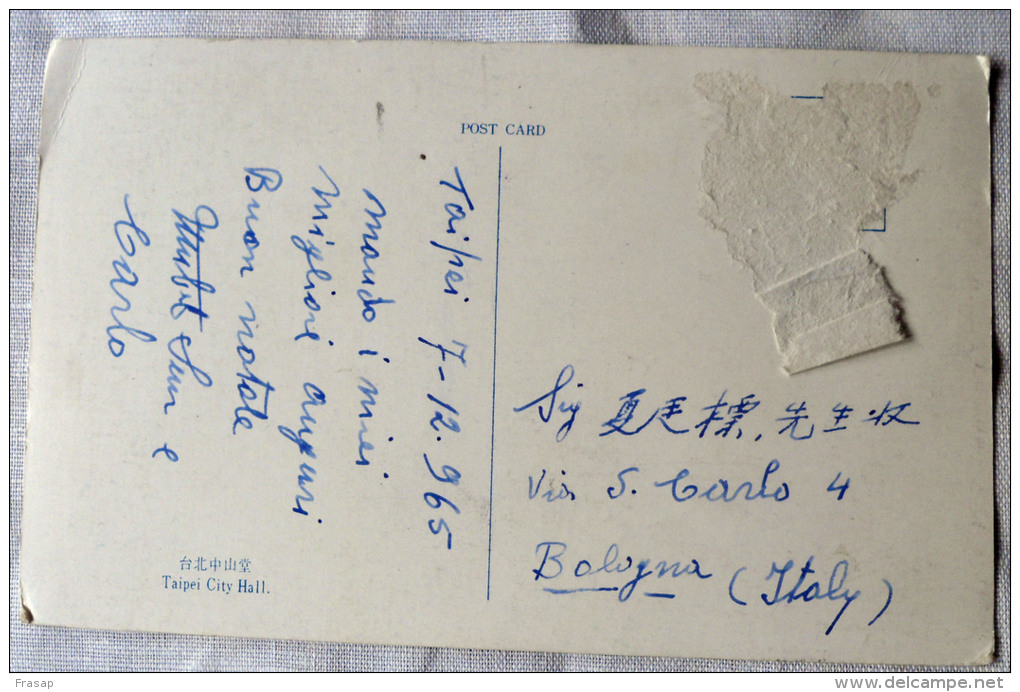 POST CARD
Taipei 7-12.965
mando i miei
migliori auguri
Buon natale
e
Carlo
台北中山堂
Taipei City Hall.
Sig 夏廷標, 先生收
Via S. Carlo 4
Bologna (Italy)
Frasap
delcampe.net